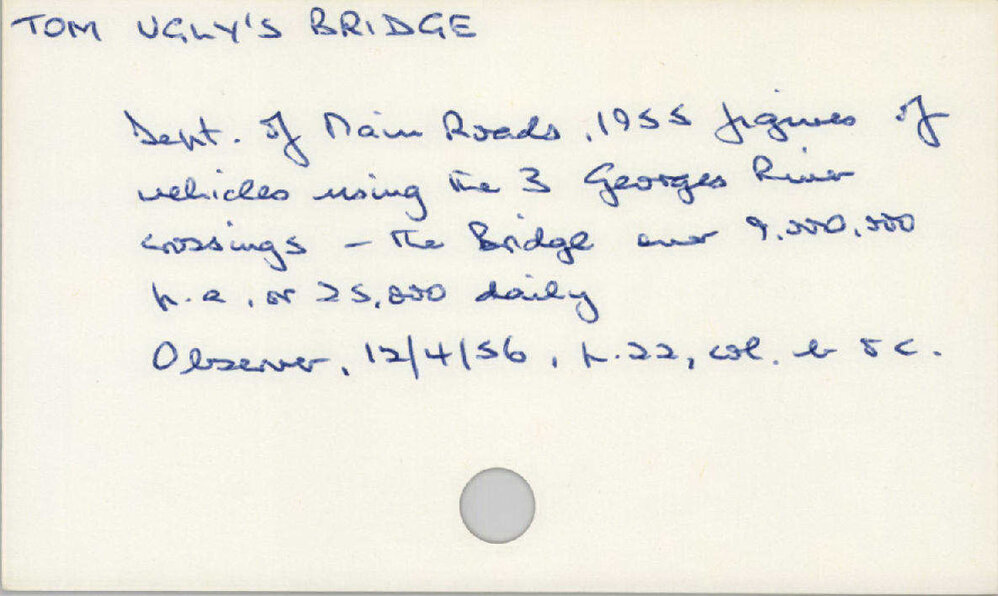 TOM UGLY'S BRIDGE
Dept. of Main Roads, 1955 figures of
vehicles using the 3 Georges River
crossings – the Bridge over 9,000,000
p.a, or 25,000 daily
Observer, 12/4/56, p.22, col. b & c.